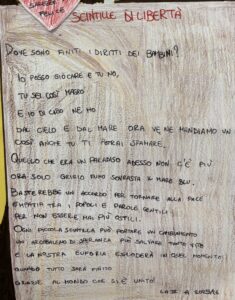 SCINTILLE DI LIBERTÀ
DOVE SONO FINITI I DIRITTI DEI BAMBINI?
IO POSSO GIOCARE E TU NO,
TU SEI COSÌ MAGRO
E IO DI CIBO NE HO
DAL CIELO E DAL MARE ORA VE NE MANDIAMO UN PO'
COSÌ ANCHE TU TI POTRAI SFAMARE.
QUELLO CHE ERA UN PARADISO ADESSO NON C'È PIÙ
ORA SOLO GRIGIO FUMO SOVRASTA IL MARE BLU.
BASTEREBBE UN ACCORDO PER TORNARE ALLA PACE
EMPATIA TRA I POPOLI E PAROLE GENTILI
PER NON ESSERE MAI PIÙ OSTILI.
OGNI PICCOLA SCINTILLA PUÒ PORTARE UN CAMBIAMENTO
UN ARCOBALENO DI SPERANZA PUÒ SALVARE TANTE VITE
E LA NOSTRA EUFORIA ESPLODERÀ IN QUEL MOMENTO
QUANDO TUTTO SARÀ FINITO
GRAZIE AL MONDO CHE SI È UNITO